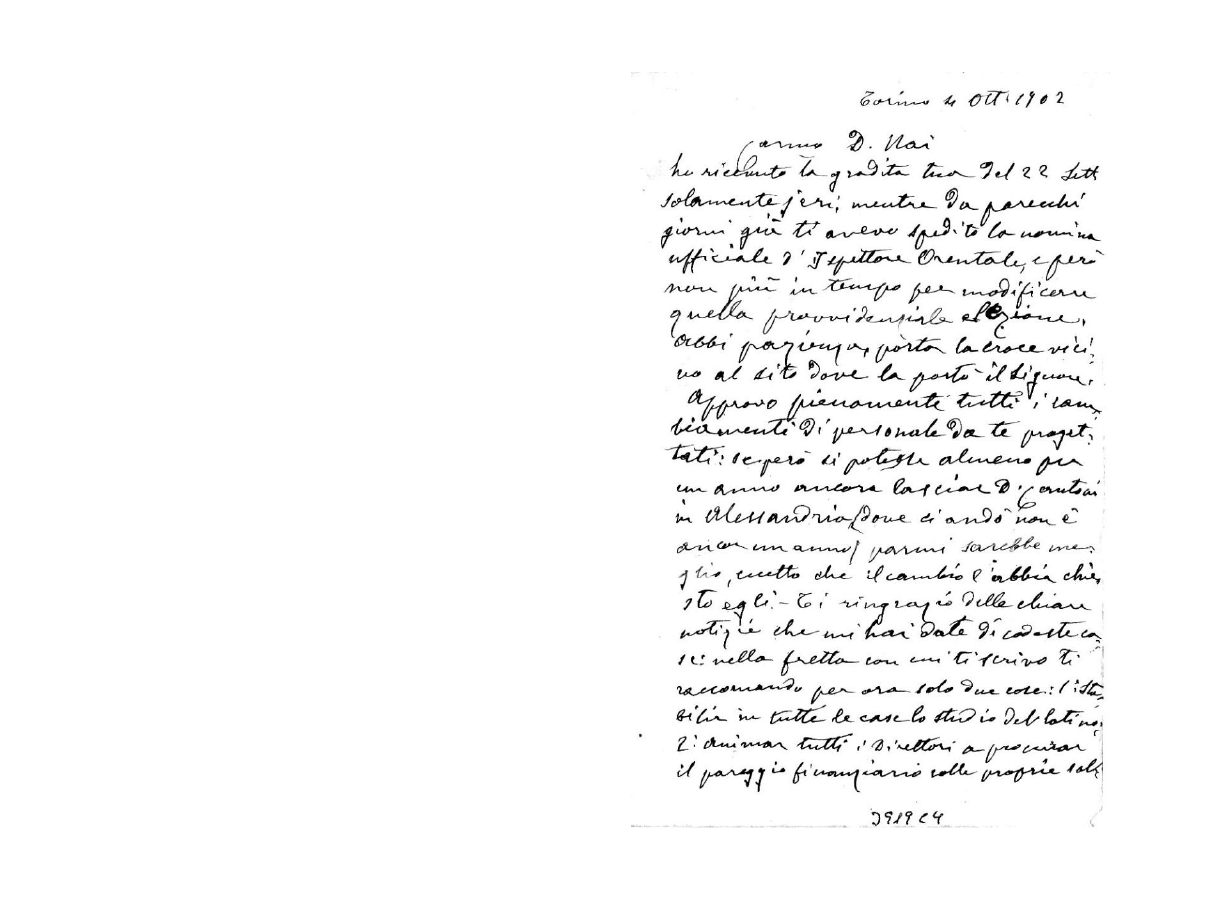 Torino 4 Ott. 1902
Carmo D. Nai
ho ricevuto la gradita tua del 22 Sett
solamente jeri; mentre da parecchi
giorni già ti avevo spedito la nomina
ufficiale d'Ispettore Orentale, e però
non più in tempo per modificare
quella provvidenziale elezione.
abbi pazienza, porta la croce vici-
no al sito dove la portò il Signore.
Approvo pienamente tutti i cam-
biamenti di personale da te proget-
tati: se però si potesse almeno per
un anno ancora lasciar D. Cantoni
in Alessandria (dove ci andò non è
ancor un anno) parmi sarebbe me-
glio, eccetto che il cambio l'abbia chie-
sto egli. - Ti ringrazio delle chiare
notizie che mi hai date di codeste ca-
se: nella fretta con cui ti scrivo ti
raccomando per ora solo due cose: 1: sta-
bilir in tutte le case lo studio del latino;
2: animar tutti i Direttori a procurar
il pareggio finanziario colle proprie
3919 C4